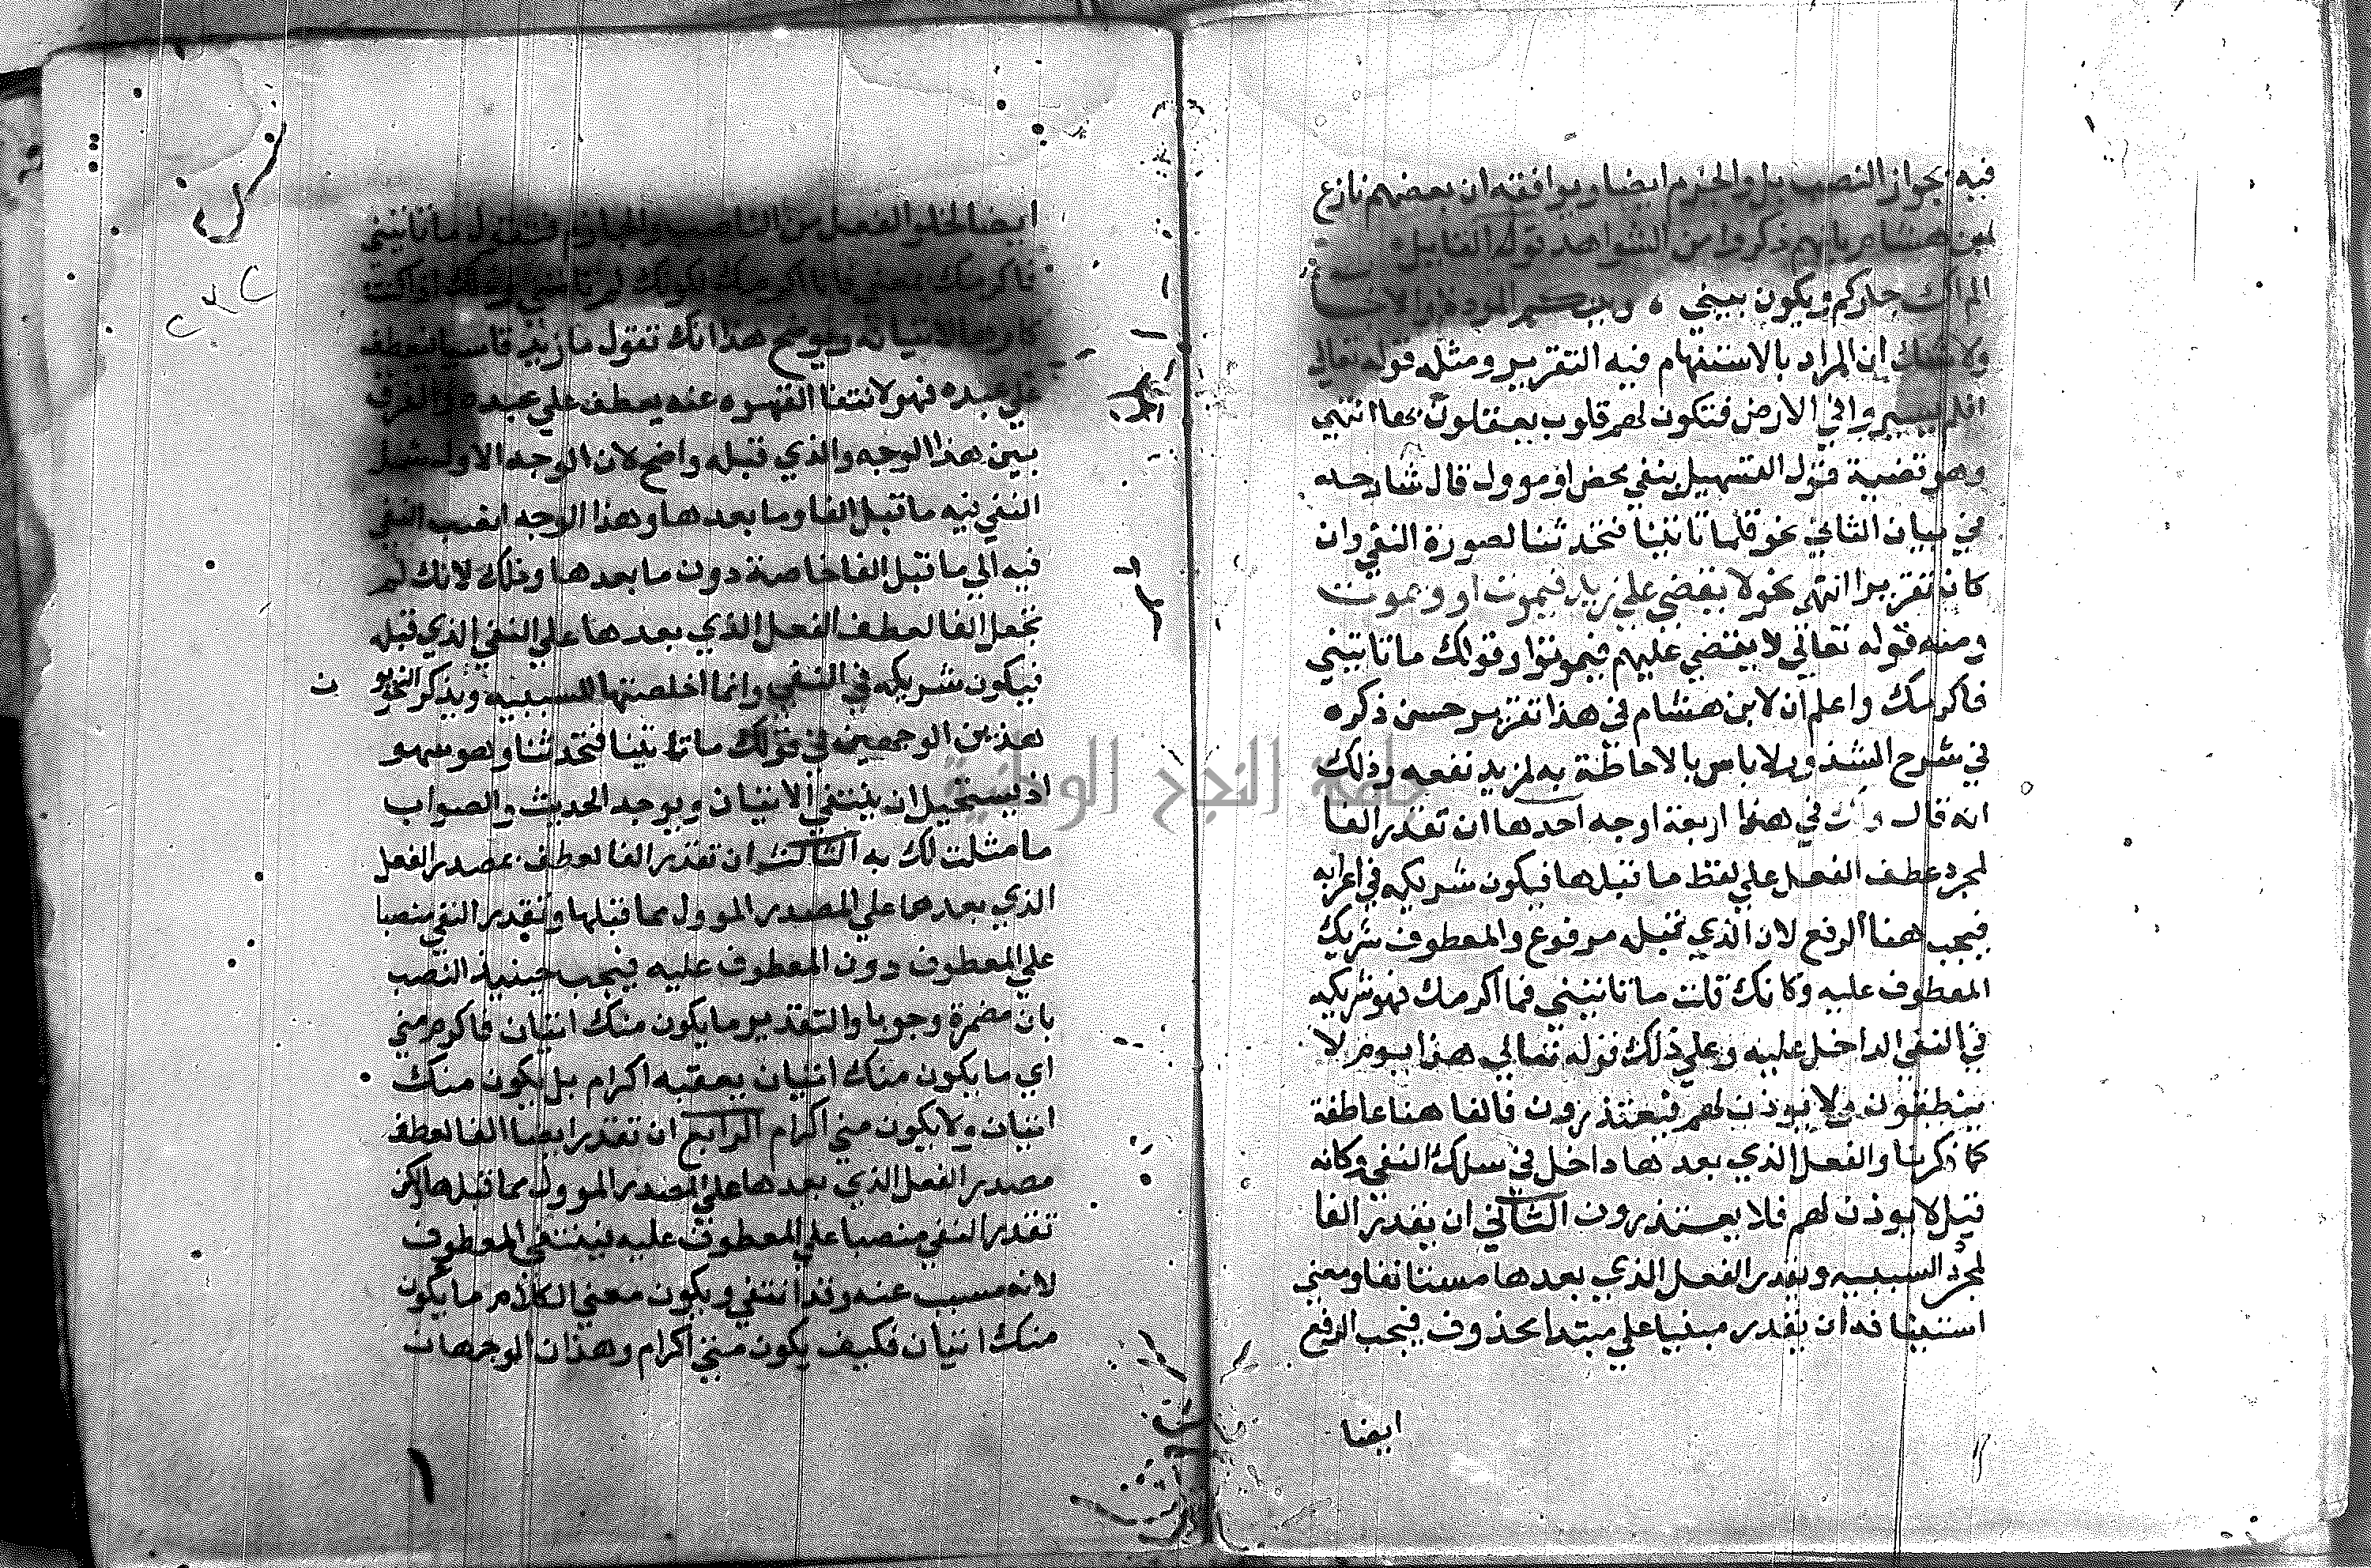 فيه بجواز النصب بل والجزم ايضا ويوافقه ان بعضهم نازع
ابن هشام بانهم ذكروا من الشواهد قوله القايل
الم اك جاركم ويكون بيني ، وبينكم المودة والاخا
ولا شك ان المراد بالاستفهام فيه التقرير ومثله قوله تعالي
افلم يسيروا في الارض فتكون لهم قلوب يعقلون بها انتهي
وهو قضية قول التسهيل بنفي محض او موول قال شارحه
في بيان الثاني نحو قلما تاتينا فتحدثنا لصورة النفي وان
كان تقريرا انتهي نحو لا يقضي علي زيد فيموت او ويموت
ومنه قوله تعالي لا يقضي عليهم فيموتوا وقولك ما تاتيني
فاكرمك واعلم ان لابن هشام في هذا تقرير حسن ذكره
في شرح الشذور ولا باس بالاحاطة به لمزيد نفعه وذلك
انه قال ولك في هذا اربعة اوجه احدها ان تقدر الفا
لمجرد عطف الفعل علي لفظ ما قبلها فيكون شريكه في اعرابه
فيجب هنا الرفع لان الذي قبله مرفوع والمعطوف شريك
المعطوف عليه وكانك قلت ما تاتيني فما اكرمك فهو شريكه
في النفي الداخل عليه وعلي ذلك قوله تعالي هذا يوم لا
ينطقون ولا يوذن لهم فيعتذرون فالفا هنا عاطفة
كما ذكرنا والفعل الذي بعدها داخل في سلك النفي وكانه
قيل لا يوذن لهم فلا يعتذرون الثاني ان يقدر الفا
لمجرد السببيه ويقدر الفعل الذي بعدها مستانفا ومعني
استينافه ان يقدر مبنيا علي مبتدا محذوف فيجب الرفع
ايضا
ايضا لخلو الفعل من الناصب والجازم فتقول ما تاتيني
فاكرمك بمعني فانا اكرمك لكونك لم تاتني وذلك اذا كنت
كارها لاتيانه ويوضح هذا انك تقول ما زيد قاسيا فيعطف
علي عبده فهو لانتفا القسوه عنه يعطف علي عبده والفرق
بين هذا الوجه والذي قبله واضح لان الوجه الاول شمل
النفي فيه ما قبل الفا وما بعدها وهذا الوجه انصب النفي
فيه الي ما قبل الفا خاصة دون ما بعدها وذلك لانك لم
تجعل الفا لعطف الفعل الذي بعدها علي النفي الذي قبله
فيكون شريكه في النفي وانما اخلصتها للسببيه ويذكر النحويون
هذين الوجهين في قولك ما تاتينا فتحدثنا وهو سهو
اذ يستحيل ان ينتفي الاتيان ويوجد الحديث والصواب
ما مثلت لك به الثالث ان تقدر الفا لعطف مصدر الفعل
الذي بعدها علي المصدر الموول مما قبلها وتقدر النفي منصبا
علي المعطوف دون المعطوف عليه فيجب حينيذ النصب
بان مضمرة وجوبا والتقدير ما يكون منك اتيان فاكرم مني
اي ما يكون منك اتيان يعقبه اكرام بل يكون منك
اتيان ولا يكون مني اكرام الرابع ان تقدر ايضا الفا لعطف
مصدر الفعل الذي بعدها علي المصدر الموول مما قبلها ولكن
تقدر النفي منصبا علي المعطوف عليه فينتفي المعطوف
لانه مسبب عنه وقد انتفي ويكون معني الكلام ما يكون
منك اتيان فكيف يكون مني اكرام وهذان الوجهان
جامعة النجاح الوطنية